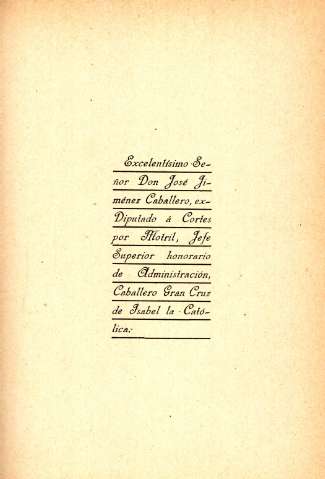 Excelentísimo Se-
ñor Don José Ji-
ménez Caballero, ex-
Diputado á Cortes
por Motril, Jefe
Superior honorario
de Administración,
Caballero Gran Cruz
de Isabel la Cató-
lica.